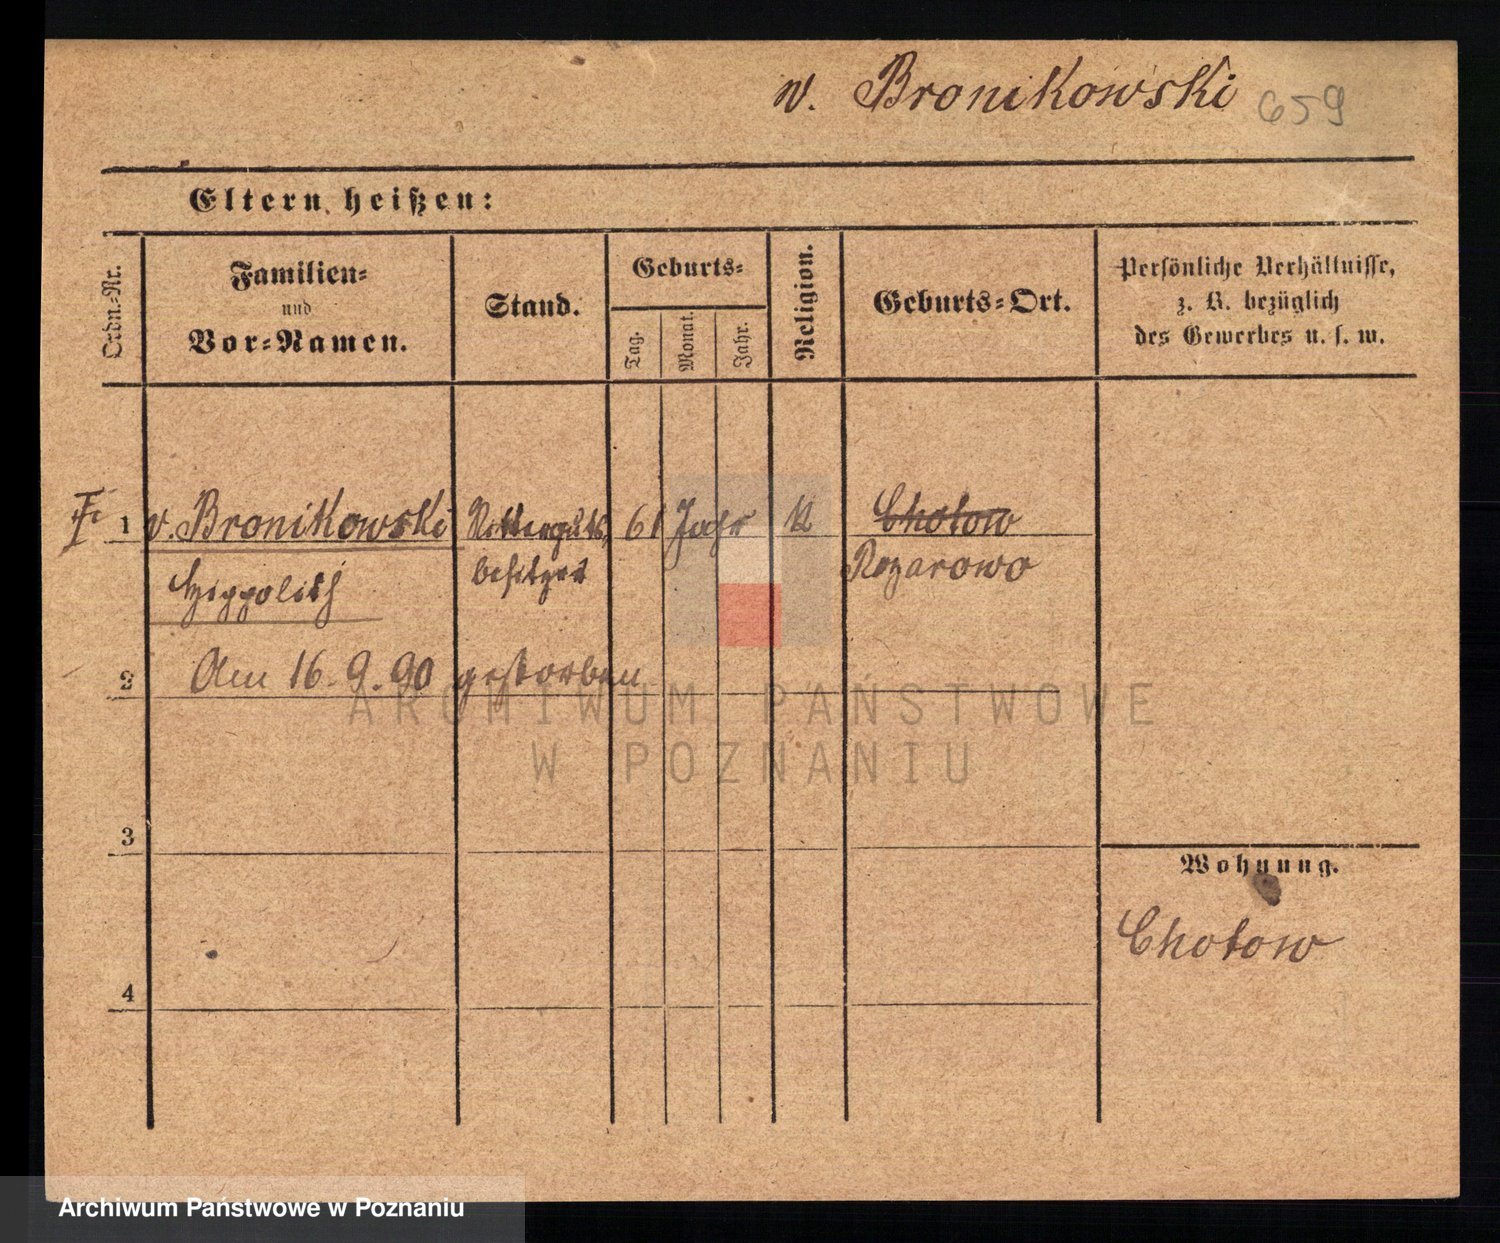 v. Bronikowski 659
Eltern heißen:
Ordn.-Nr.
Familien-
und
Vor-Namen.
Stand.
Geburts-
Tag.
Monat.
Jahr.
Religion.
Geburts-Ort.
Persönliche Verhältnisse,
z. B. bezüglich
des Gewerbes u. s. w.
1 v. Bronikowski Ritterguts- 61 Jahr K Chotow
Hippolith besitzer Rozarowo
2 Am 16. 9. 90 gestorben
ARCHIWUM PAŃSTWOWE
W POZNANIU
3
Wohnung.
Chotow
4
Archiwum Państwowe w Poznaniu